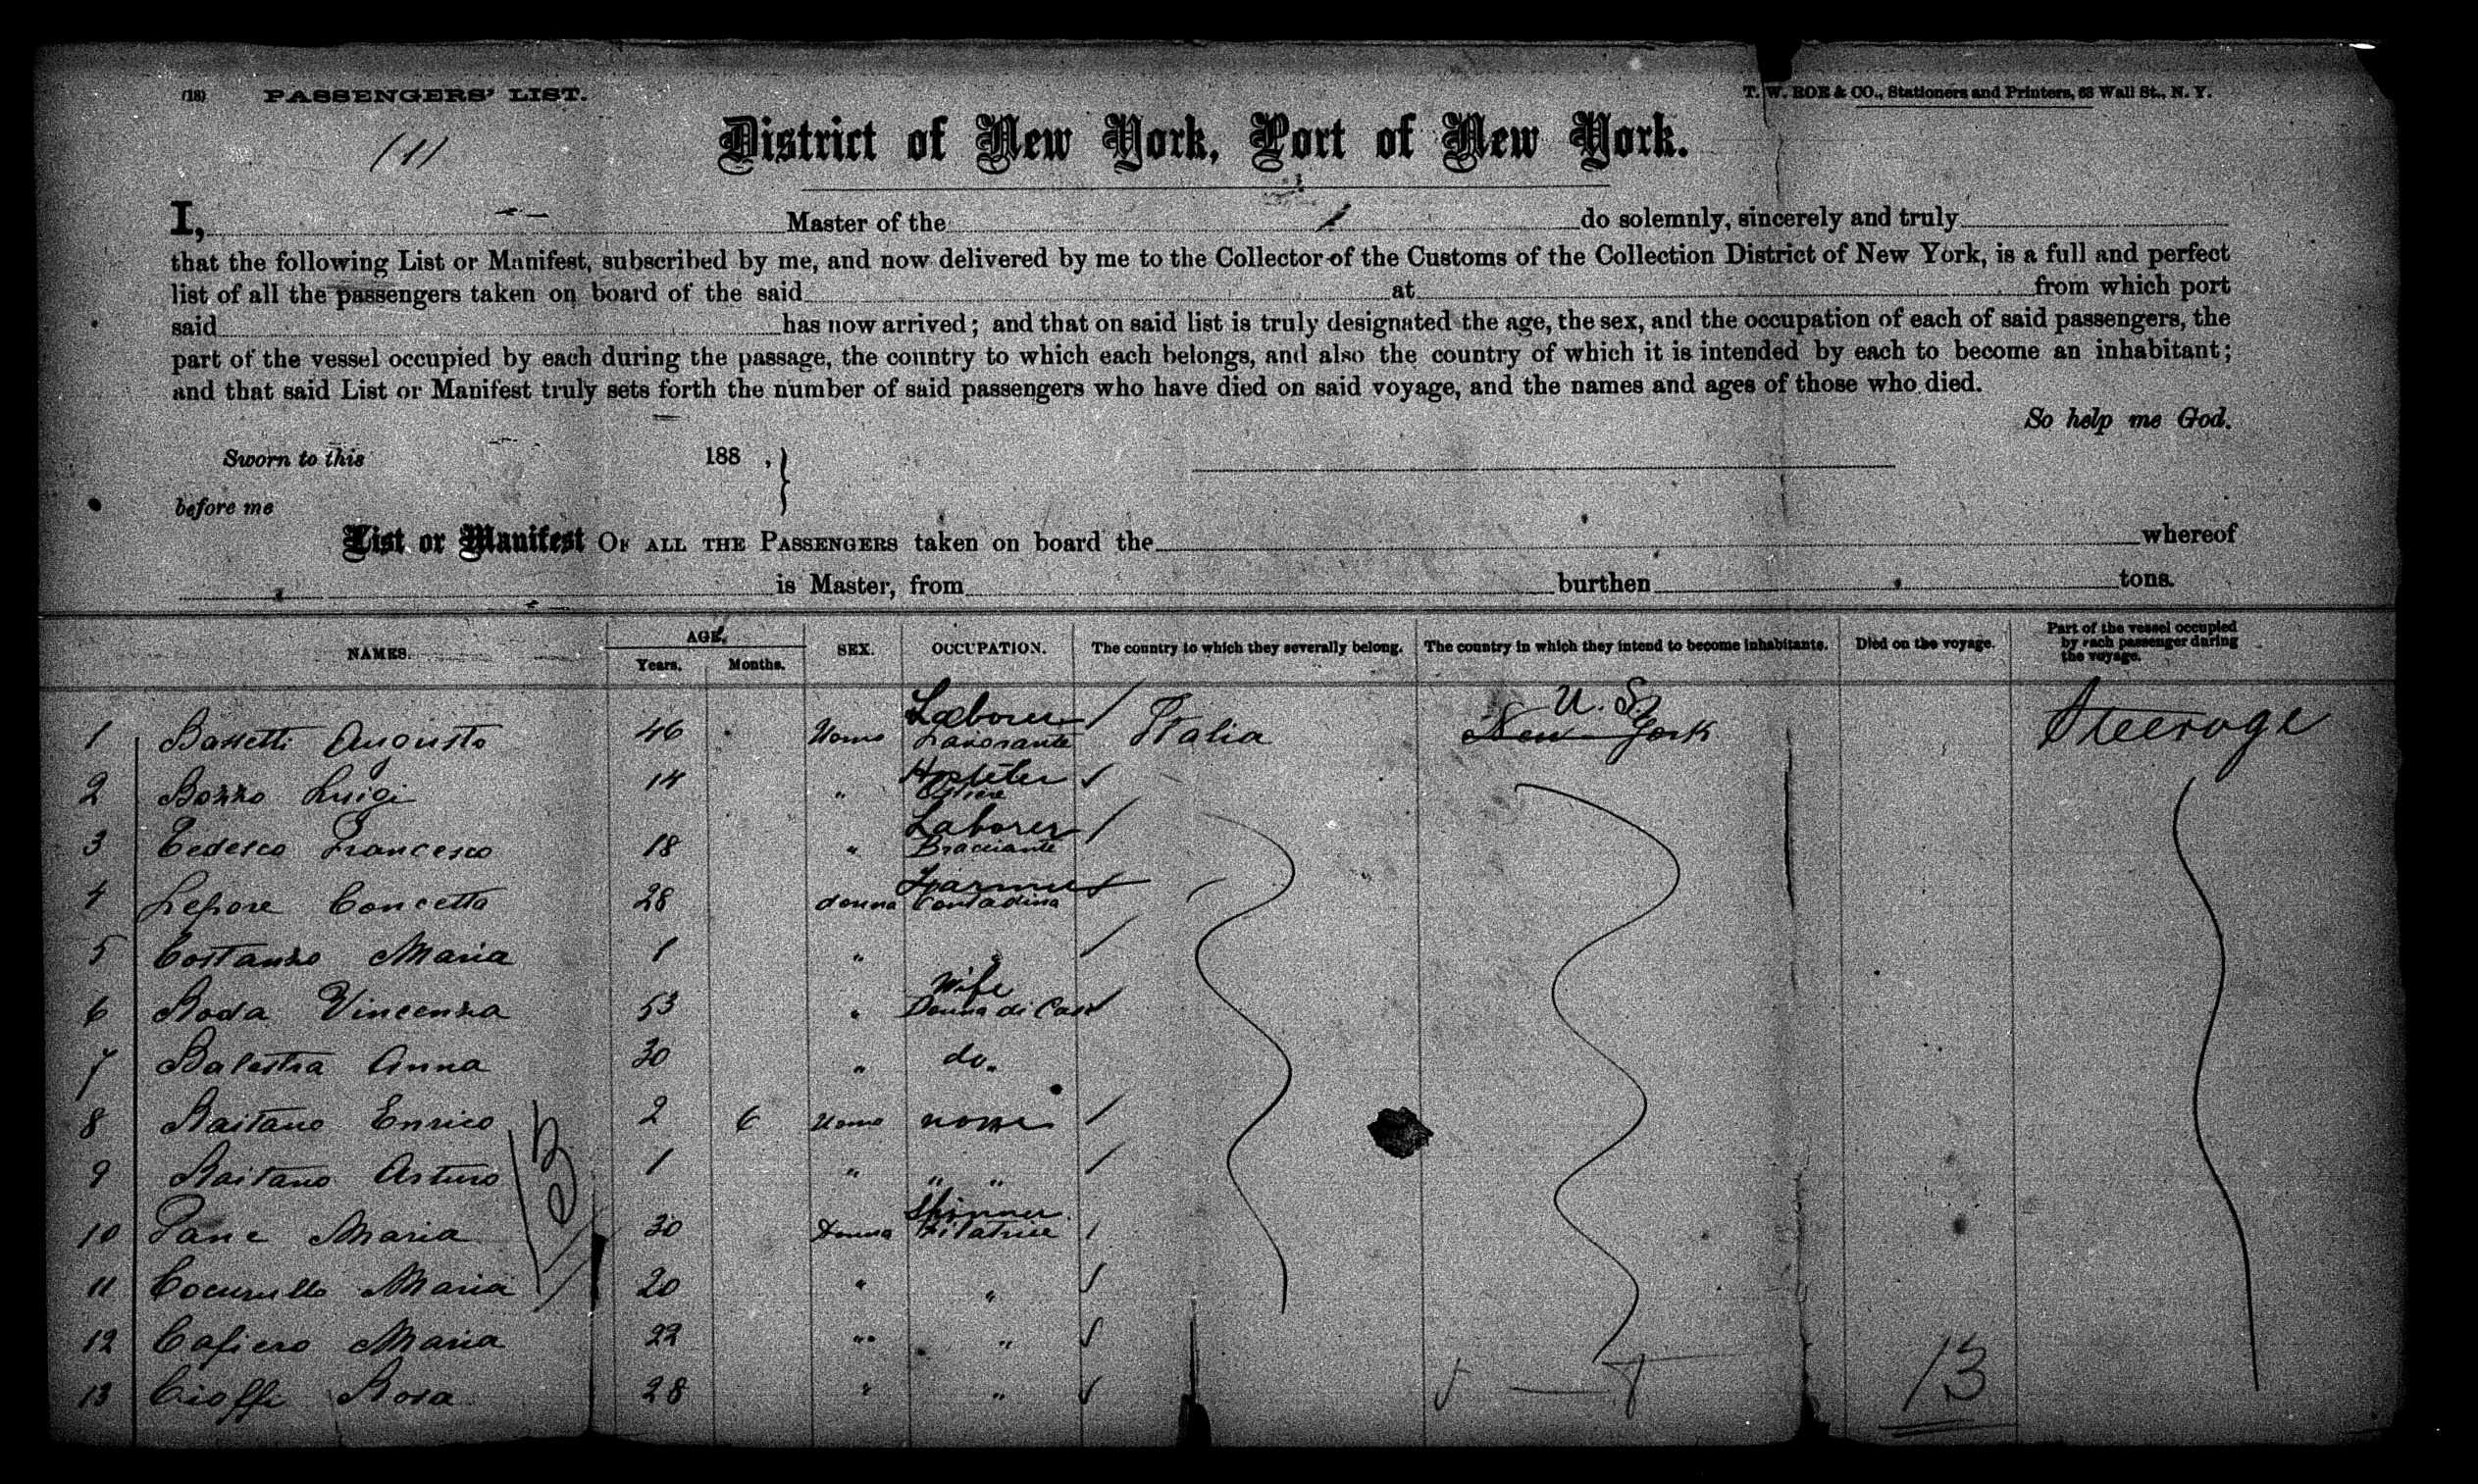 (18) PASSENGERS' LIST.
T. W. ROE & CO., Stationers and Printers, 63 Wall St., N. Y.
(1)
District of New York, Port of New York.
I, Master of the do solemnly, sincerely and truly
that the following List or Manifest, subscribed by me, and now delivered by me to the Collector of the Customs of the Collection District of New York, is a full and perfect
list of all the passengers taken on board of the said at from which port
said has now arrived; and that on said list is truly designated the age, the sex, and the occupation of each of said passengers, the
part of the vessel occupied by each during the passage, the country to which each belongs, and also the country of which it is intended by each to become an inhabitant;
and that said List or Manifest truly sets forth the number of said passengers who have died on said voyage, and the names and ages of those who died.
So help me God.
Sworn to this 188 ,
before me
List or Manifest OF ALL THE PASSENGERS taken on board the whereof
is Master, from burthen tons.
NAMES. AGE. Years. Months. SEX. OCCUPATION. The country to which they severally belong. The country in which they intend to become inhabitants. Died on the voyage. Part of the vessel occupied by each passenger during the voyage.
Laborer U. S.
1 Bassetti Augusto 46 Uomo Lavorante Italia New York Steerage
2 Bozzo Luigi 14 " Ostiere
Laborer
3 Tedesco Francesco 18 " Bracciante
Farmer
4 Lepore Concetta 28 donna Contadina
5 Costanzo Maria 1 "
Wife
6 Roda Vincenza 53 " Donna di Casa
7 Balestra Anna 30 " do.
8 Raitano Enrico 2 6 Uomo none
9 Raitano Arturo 1 " " "
Spinner
10 Pane Maria 30 Donna Filatrice
11 Cocurullo Maria 20 " "
12 Cafiero Maria 22 " "
13 Cioffi Rosa 28 " "
13